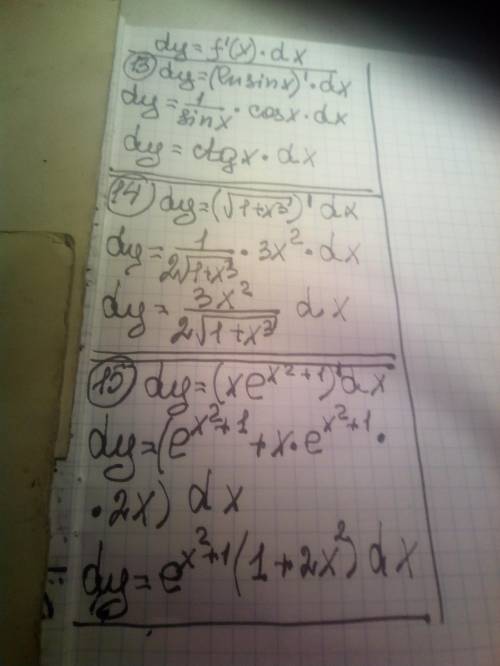 dy = f'(x) · dx
13 dy = (ln sin x)' · dx
dy = 1/sin x · cos x · dx
dy = ctg x · dx
14 dy = (√1+x³)' dx
dy = 1/2√1+x³ · 3x² · dx
dy = 3x²/2√1+x³ dx
15 dy = (xe^x²+1)' dx
dy = (e^x²+1 + x · e^x²+1 ·
· 2x) dx
dy = e^x²+1 (1 + 2x²) dx